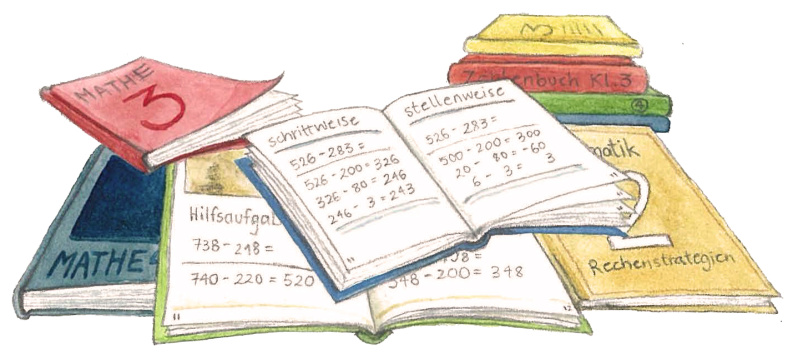 MATHE
3
3
Zahlenbuch Kl.3
4
schrittweise
526 - 283 =
526 - 200 = 326
326 - 80 = 246
246 - 3 = 243
"
stellenweise
526 - 283 =
500 - 200 = 300
20 - 80 = -60
6 - 3 = 3
MATHE
Hilfsaufga
738 - 218 =
740 - 220 = 520
11
548 - 200 = 348
12
matik
2
Rechenstrategien